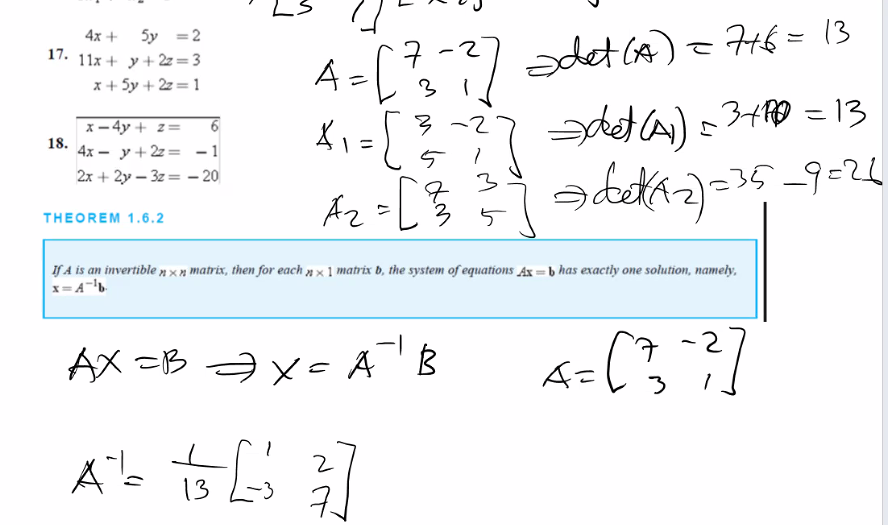 17. 4x + 5y = 2
11x + y + 2z = 3
x + 5y + 2z = 1
18. x − 4y + z = 6
4x − y + 2z = − 1
2x + 2y − 3z = − 20
A = [7 -2; 3 1] ⇒ det(A) = 7+6 = 13
A1 = [3 -2; 5 1] ⇒ det(A1) = 3+10 = 13
A2 = [7 3; 3 5] ⇒ det(A2) = 35 - 9 = 26
THEOREM 1.6.2
If A is an invertible n × n matrix, then for each n × 1 matrix b, the system of equations Ax = b has exactly one solution, namely,
x = A⁻¹b.
AX = B ⇒ X = A⁻¹ B
A = [7 -2; 3 1]
A⁻¹ = 1/13 [1 2; -3 7]